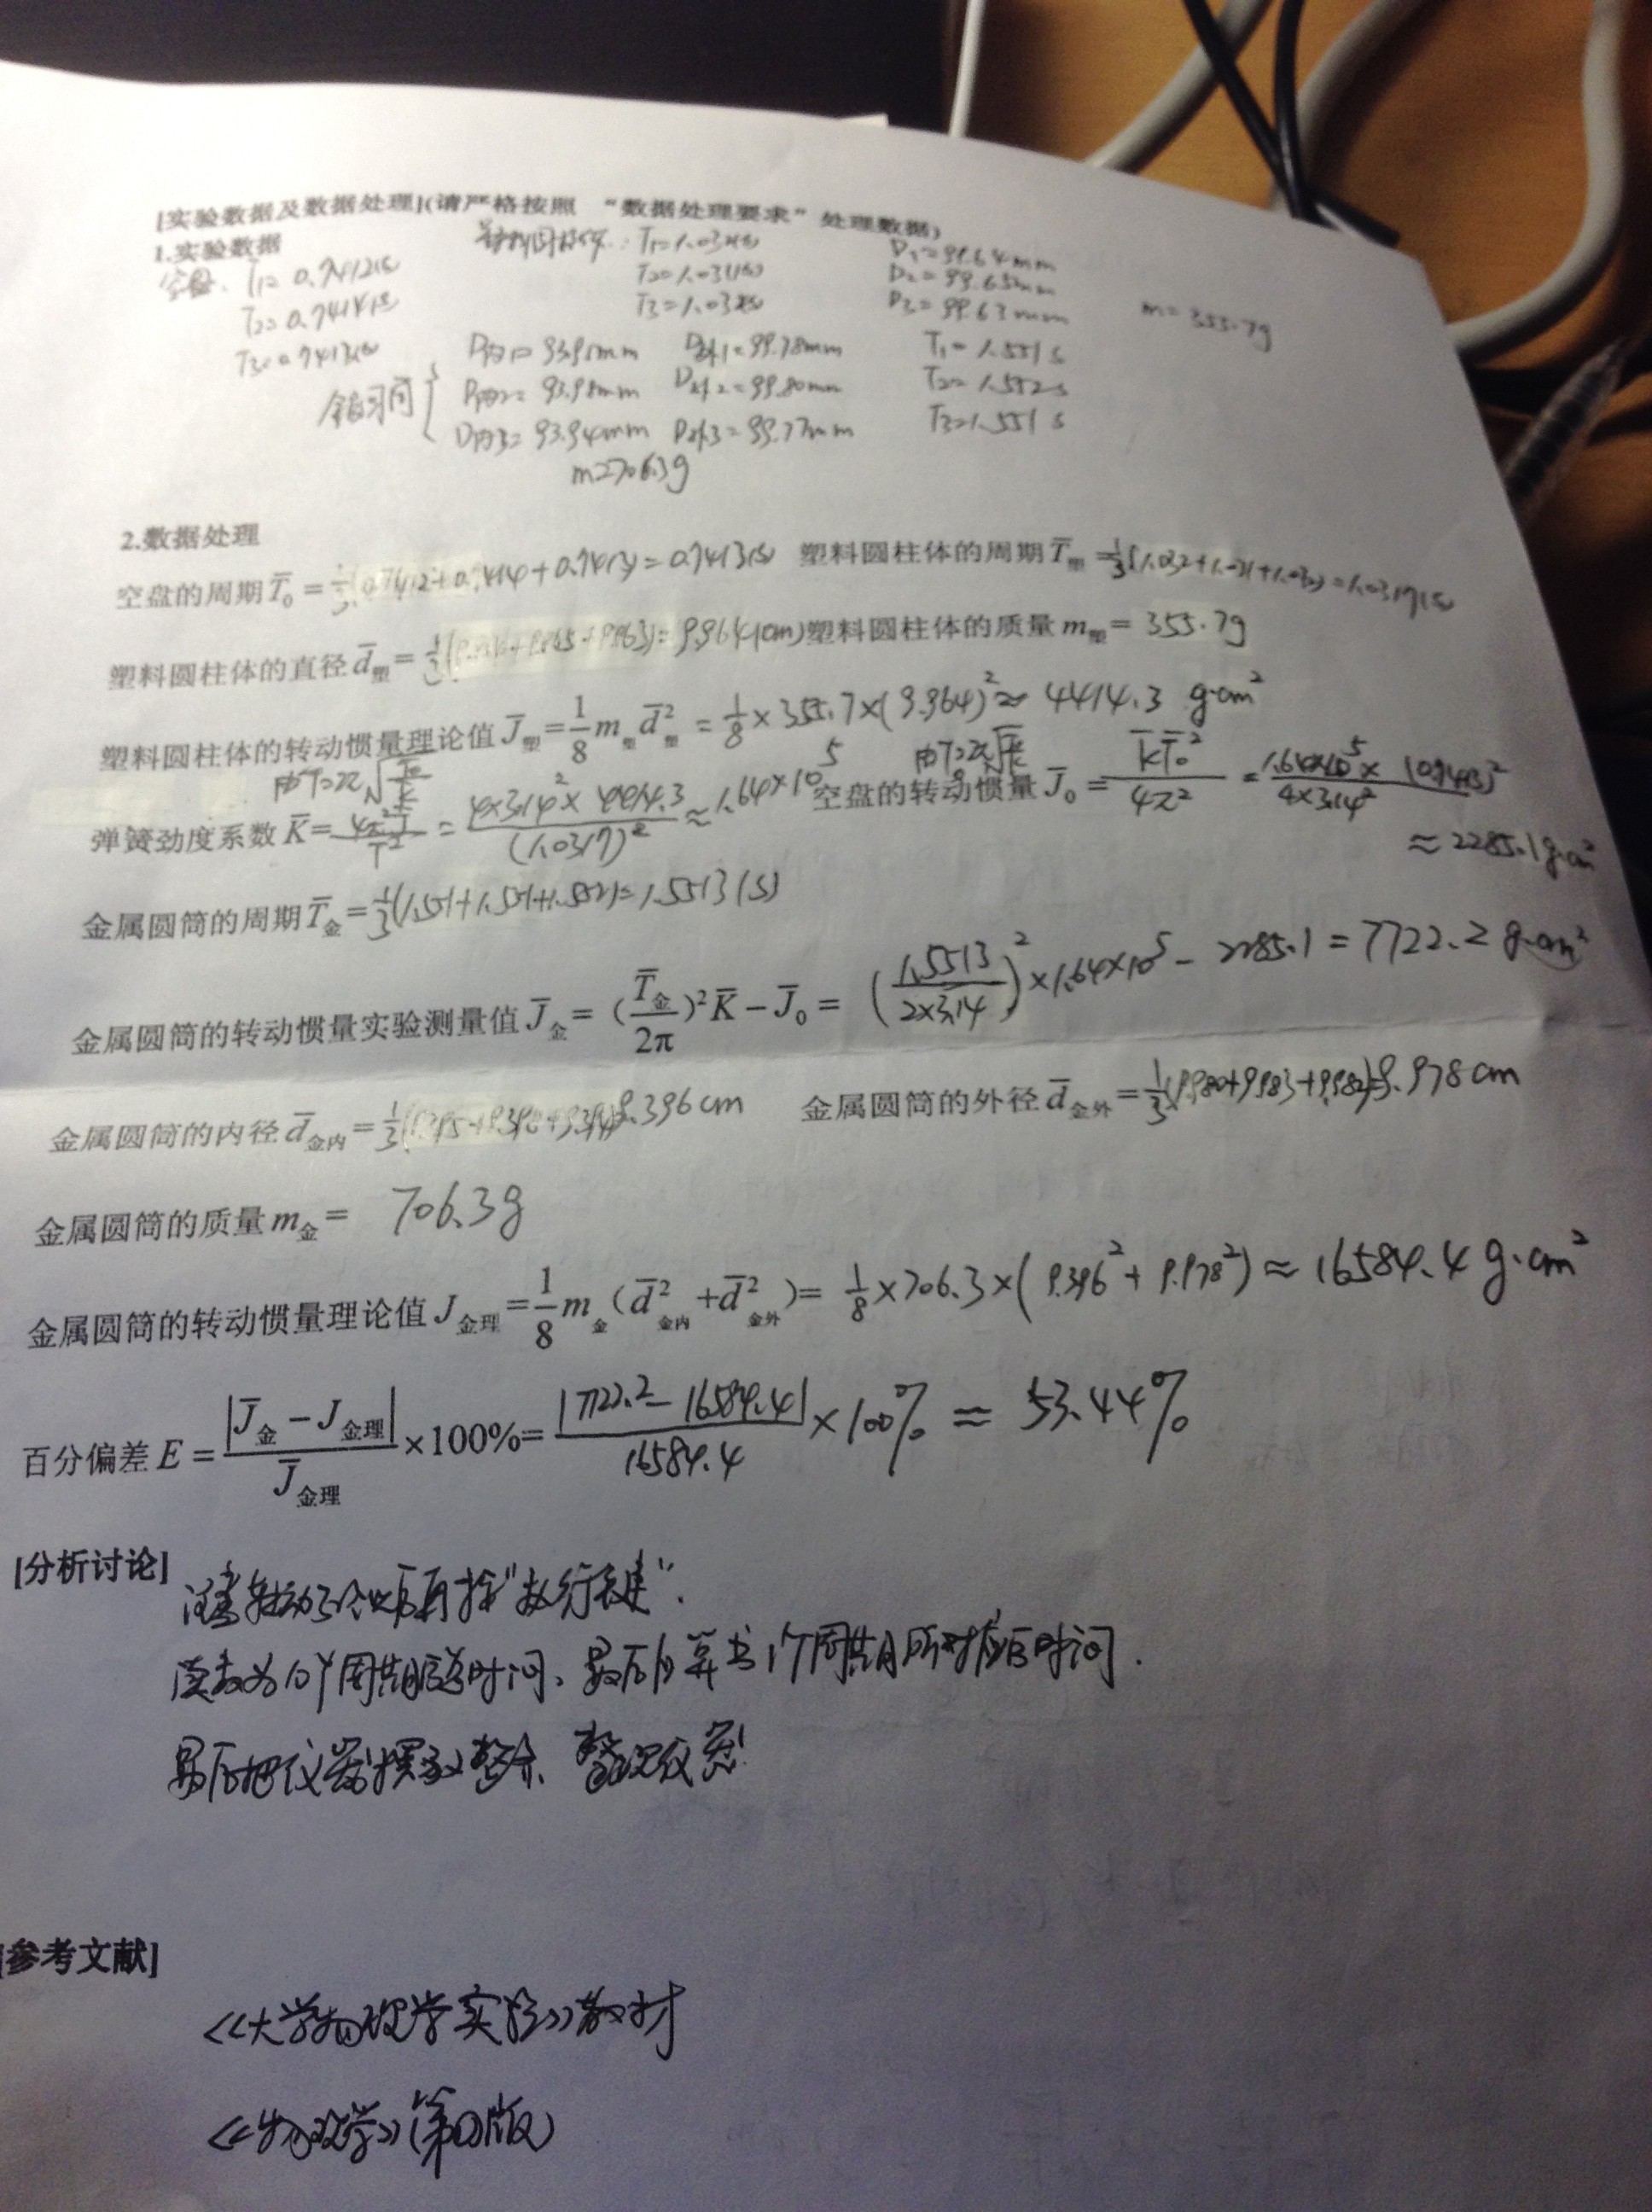 [实验数据及数据处理](请严格按照 “数据处理要求” 处理数据)
1.实验数据
空盘: T₁= 0.7412(s) T₁=1.032(s) D₁=99.64mm
T₂= 0.7414(s) T₂=1.031(s) D₂= 99.65mm
T₃=0.7413(s) T₃=1.032(s) D₃= 99.63mm m= 355.7g
D内1= 93.95mm D外1=99.78mm T₁= 1.551s
金属圆筒 D内2= 93.98mm D外2=99.80mm T₂= 1.552s
D内3= 93.94mm D外3=99.77mm T₃=1.551s
m=706.3g
2.数据处理
空盘的周期 T̅₀ = ⅓(0.7412+0.7414+0.7413)= 0.7413(s) 塑料圆柱体的周期 T̅塑 = ⅓(1.032+1.031+1.032)=1.0317(s)
塑料圆柱体的直径 d̅塑 = 9.964(cm) 塑料圆柱体的质量 m塑 = 355.7g
塑料圆柱体的转动惯量理论值 J̅塑 = 1/8 m塑 d̅²塑 = 1/8 × 355.7×(9.964)² ≈ 4414.3 g·cm²
由T=2π√(J/k) 由T=2π√(J/k)
弹簧劲度系数 K̅ = 4π²J̅/T² = 4×3.14²×4414.3/(1.0317)² ≈1.64×10⁵ 空盘的转动惯量 J̅₀ = k̅T̅₀²/4π² = 1.64×10⁵×(0.7413)²/4×3.14²
≈ 2285.1g·cm²
金属圆筒的周期 T̅金 = ⅓(1.551+1.551+1.552)=1.5513(s)
金属圆筒的转动惯量实验测量值 J̅金 = (T̅金/2π)²K̅ − J̅₀ = (1.5513/2×3.14)²×1.64×10⁵ − 2285.1 = 7722.2 g·cm²
金属圆筒的内径 d̅金内 = 9.396cm 金属圆筒的外径 d̅金外 = ⅓(9.980+9.983+9.982)=9.978cm
金属圆筒的质量 m金 = 706.3g
金属圆筒的转动惯量理论值 J金理 = 1/8 m金 (d̅²金内 + d̅²金外)= 1/8 ×706.3×(9.396²+9.978²) ≈ 16584.4 g·cm²
百分偏差 E = |J̅金 − J金理|/J̅金理 ×100%= |7722.2−16584.4|/16584.4 ×100% ≈ 53.44%
[分析讨论]
后再按“执行键”.
读数为10个周期总时间、最后 算出1个周期所对应的时间.
最后把仪器摆放整齐、整理仪器!
[参考文献]
《大学物理学实验》教材
《物理学》(第 版)